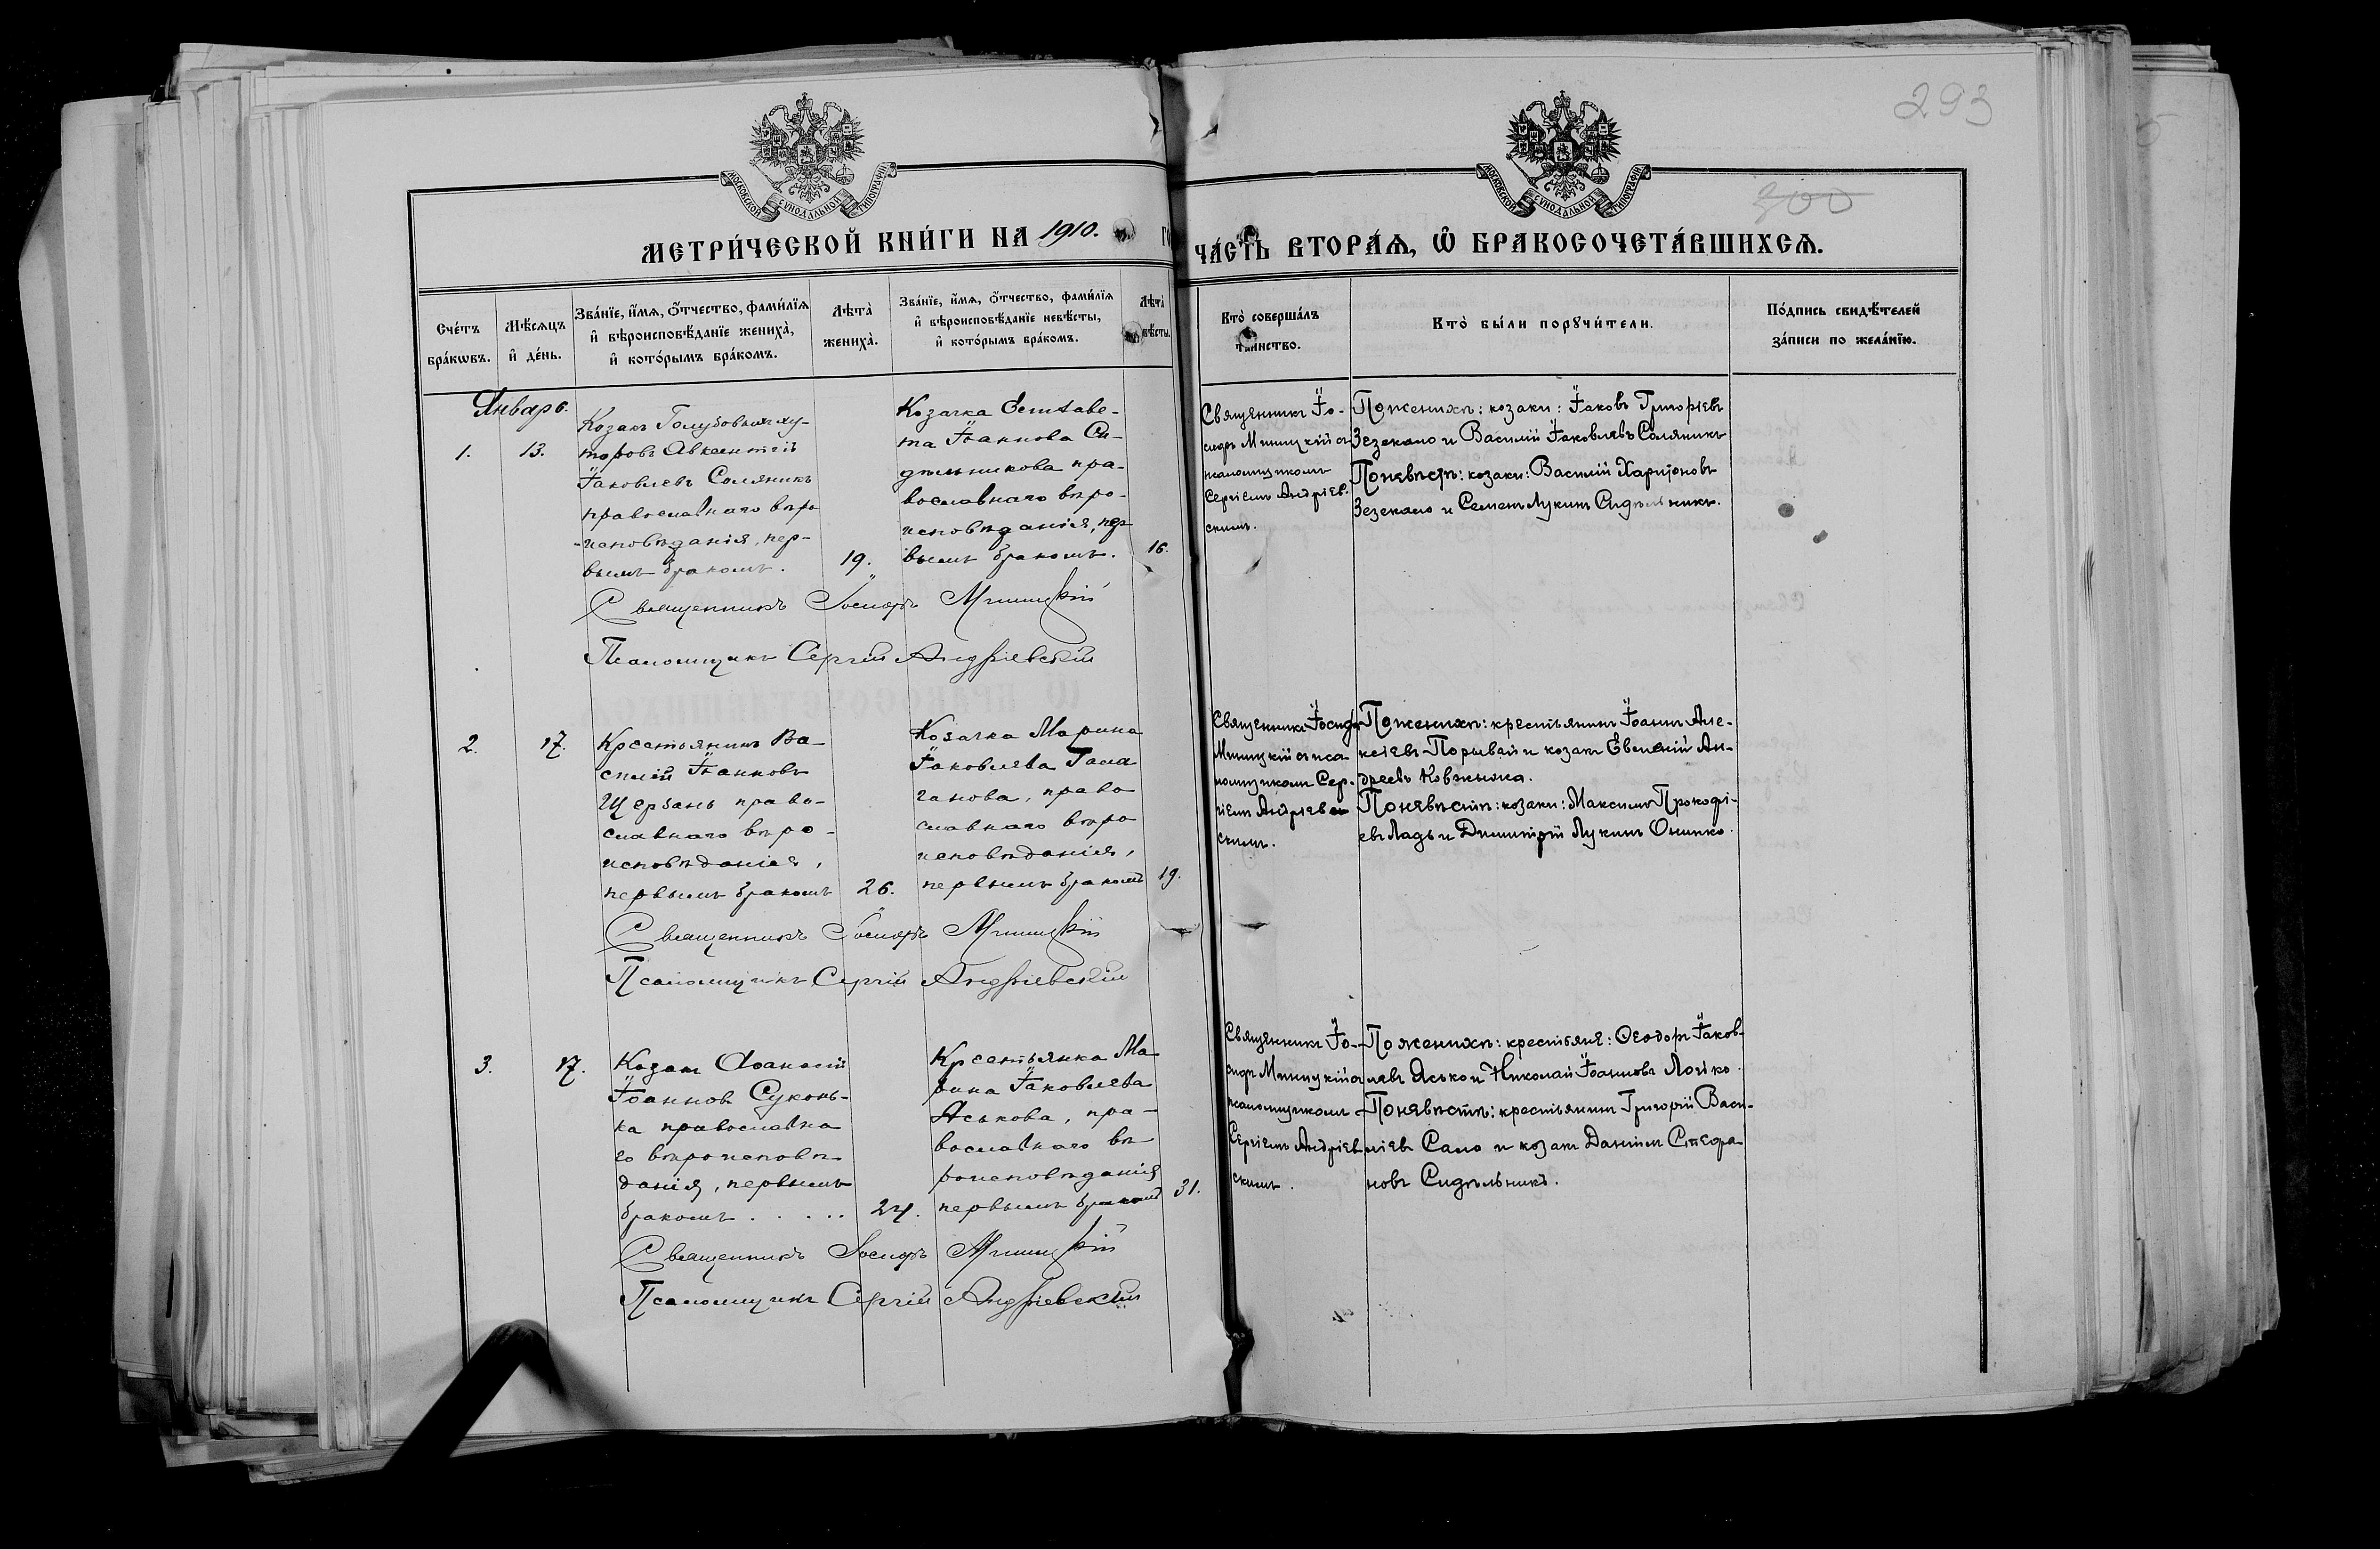 293
300
МОСКОВСКОЙ СУНОДАЛЬНОЙ ТИПОГРАФІИ
МОСКОВСКОЙ СУНОДАЛЬНОЙ ТИПОГРАФІИ
МЕТРИ́ЧЕСКОЙ КНИ́ГИ НА 1910. ГО
ЧА́СТЬ ВТОРА́Ѧ, Ѽ БРАКОСОЧЕТА́ВШИХСѦ.
Сче́тъ
бра́кѡвъ.
Мѣ́сѧцъ
и҆ де́нь.
Зва́нїе, и҆́мѧ, ѻ҆́тчество, фами́лїѧ
и҆ вѣроисповѣ́данїе жениха̀,
и҆ кото́рымъ бра́комъ.
Лѣта̀
жениха̀.
Зва́нїе, и҆́мѧ, ѻ҆́тчество, фами́лїѧ
и҆ вѣроисповѣ́данїе невѣ́сты,
и҆ кото́рымъ бра́комъ.
Лѣта̀
вѣ́сты.
Кто̀ соверша́лъ
та́инство.
Кто̀ бы́ли порꙋчи́тели.
По́дпись свидѣ́телей
за́писи по жела́нїю.
Январь.
1.
13.
Козакъ Голубовыхъ ху-
торовъ Авксентій
Іаковлевъ Соляникъ
православнаго вѣро
-исповѣданія, пер-
вымъ бракомъ.
19.
Козачка Елисаве-
та Іоаннова Си-
дѣльникова пра-
вославнаго вѣро-
исповѣданія, пер
вымъ бракомъ.
16.
Священникъ Іо-
сифъ Мшицкій съ
псаломщикомъ
Сергіемъ Андріев-
скимъ.
По женихѣ: козаки: Іаковъ Григоріевъ
Зезекало и Василій Іаковлевъ Соляникъ
По невѣстѣ: козаки: Василій Харитоновъ
Зезекало и Семенъ Лукинъ Сидѣльникъ.
Священникъ Іосифъ Мшицкій
Псаломщикъ Сергій Андріевскій
2.
17.
Крестьянинъ Ва-
силій Іоанновъ
Щербань право-
славнаго вѣро-
исповѣданія,
первымъ бракомъ
26.
Козачка Марина
Іаковлева Гала
ганова, право
славнаго вѣро
исповѣданія,
первымъ бракомъ
19.
Священникъ Іосифъ
Мшицкій съ пса
ломщикомъ Сер-
гіемъ Андріев
скимъ.
По женихѣ: крестьянинъ Іоаннъ Але-
ксіевъ Порывай и козакъ Евгеній Ан-
дреевъ Ковжыжа.
По невѣстѣ: козаки: Максимъ Прокофі-
евъ Ладь и Димитрій Лукинъ Онипко.
Священникъ Іосифъ Мшицкій
Псаломщикъ Сергій Андріевскій
3.
17.
Козакъ Аѳанасій
Іоанновъ Суконь-
ка православна
го вѣроисповѣ
данія, первымъ
бракомъ . . . . .
24.
Крестьянка Ма
рина Іаковлева
Аськова, пра-
вославнаго вѣ
роисповѣданія
первымъ бракомъ
31.
Священникъ Іо-
сифъ Мшицкій съ
псаломщикомъ
Сергіемъ Андріев
скимъ.
По женихѣ: крестьяне: Ѳеодоръ Іаков-
левъ Ясько и Николай Іоанновъ Логко.
По невѣстѣ: крестьянинъ Григорій Васи-
ліевъ Сало и козакъ Даніилъ Стефа
новъ Сидѣльникъ.
Священникъ Іосифъ Мшицкій
Псаломщикъ Сергій Андріевскій